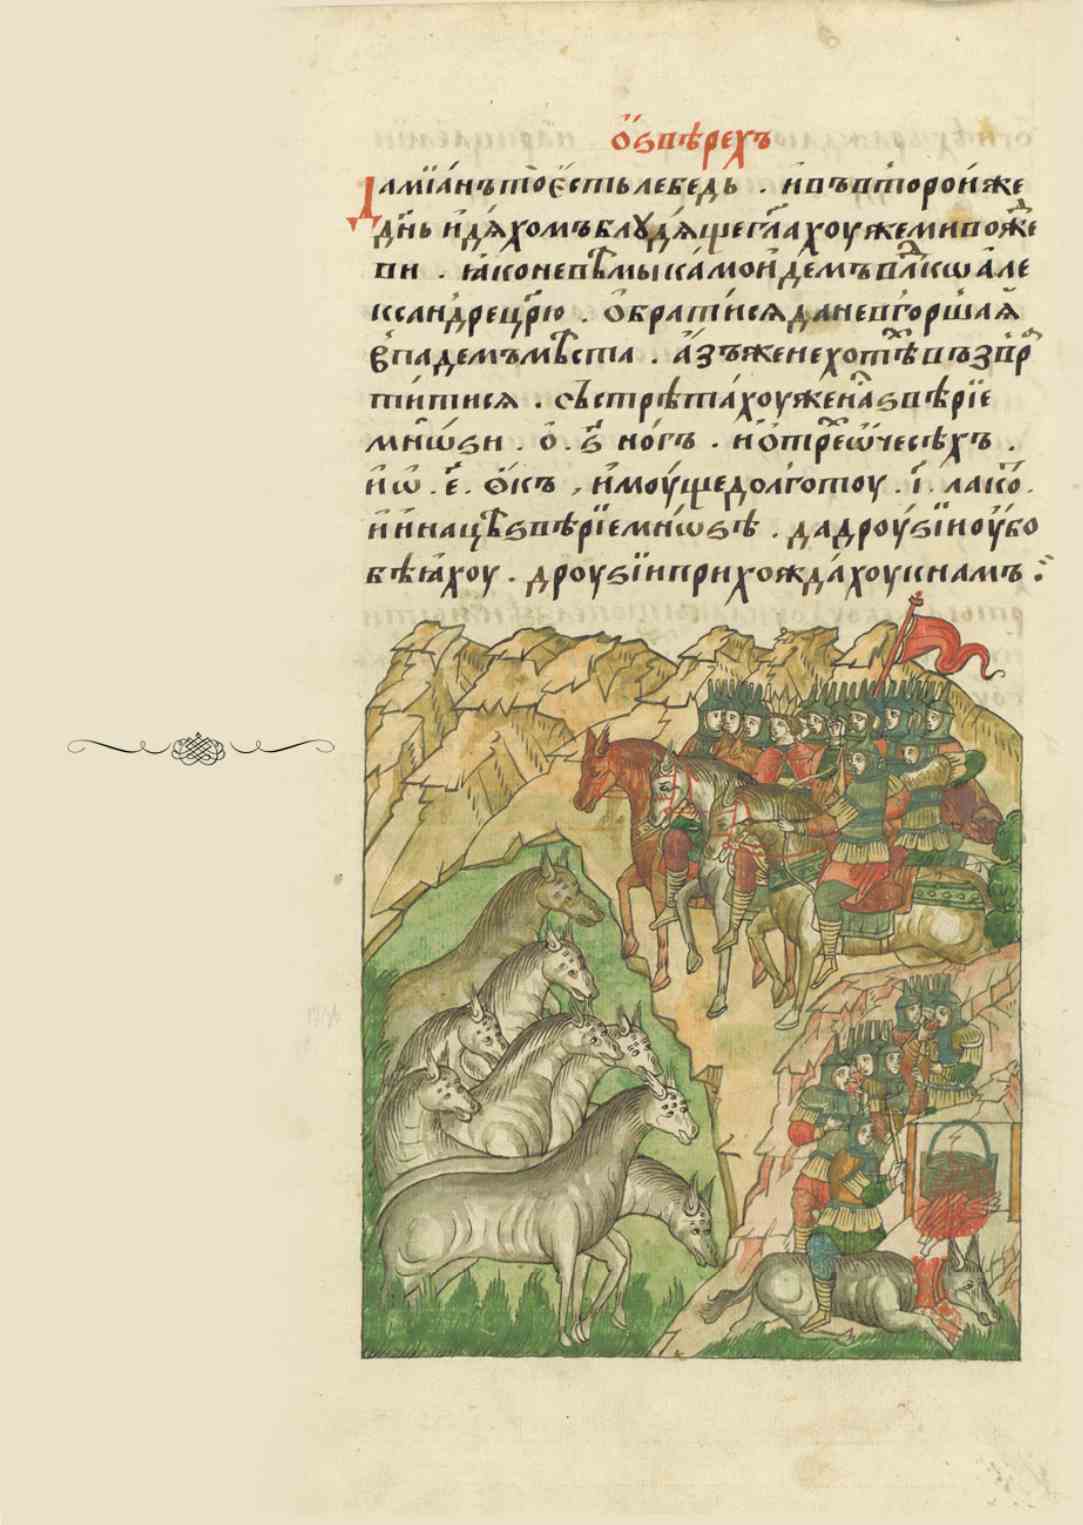 ѻ ѕвѣрехъ
Дамїа́нъ то е҆сть лебедь . и҆ въ второи́ же
дн҃ь и҆дѧ́хомъ блꙋдѧще гл҃ахоу же ми вожⷣе
ви . ꙗ҆ко не вѣмы ка́мо и҆демъ влⷣко а҆ле
ѯандре цр҃ю . ѻ҆брати́сѧ да не в го́ршаѧ
впадемъ мѣ́ста . а҆́зъ же не хотѣⷯ възвр
ти́тисѧ . състрѣта́хоу же на́с ѕвѣрїе
мнѡ́ѕи . ѻ҆ . ѕ҃ . но́гъ . и҆ ѻ҆ треⷯ ѻ҆чесѣхъ .
и҆ ѡ . е҃ . ѻ҆къ , и҆моу́ще долготоу . і҃ . лако́ .
и҆ и҆на цѣ ѕвѣрїе мнѡ́ѕѣ . да дроу́ѕїи оу҆бо
бѣꙗ́хоу . дроуѕїи прихожда́хоу к намъ :